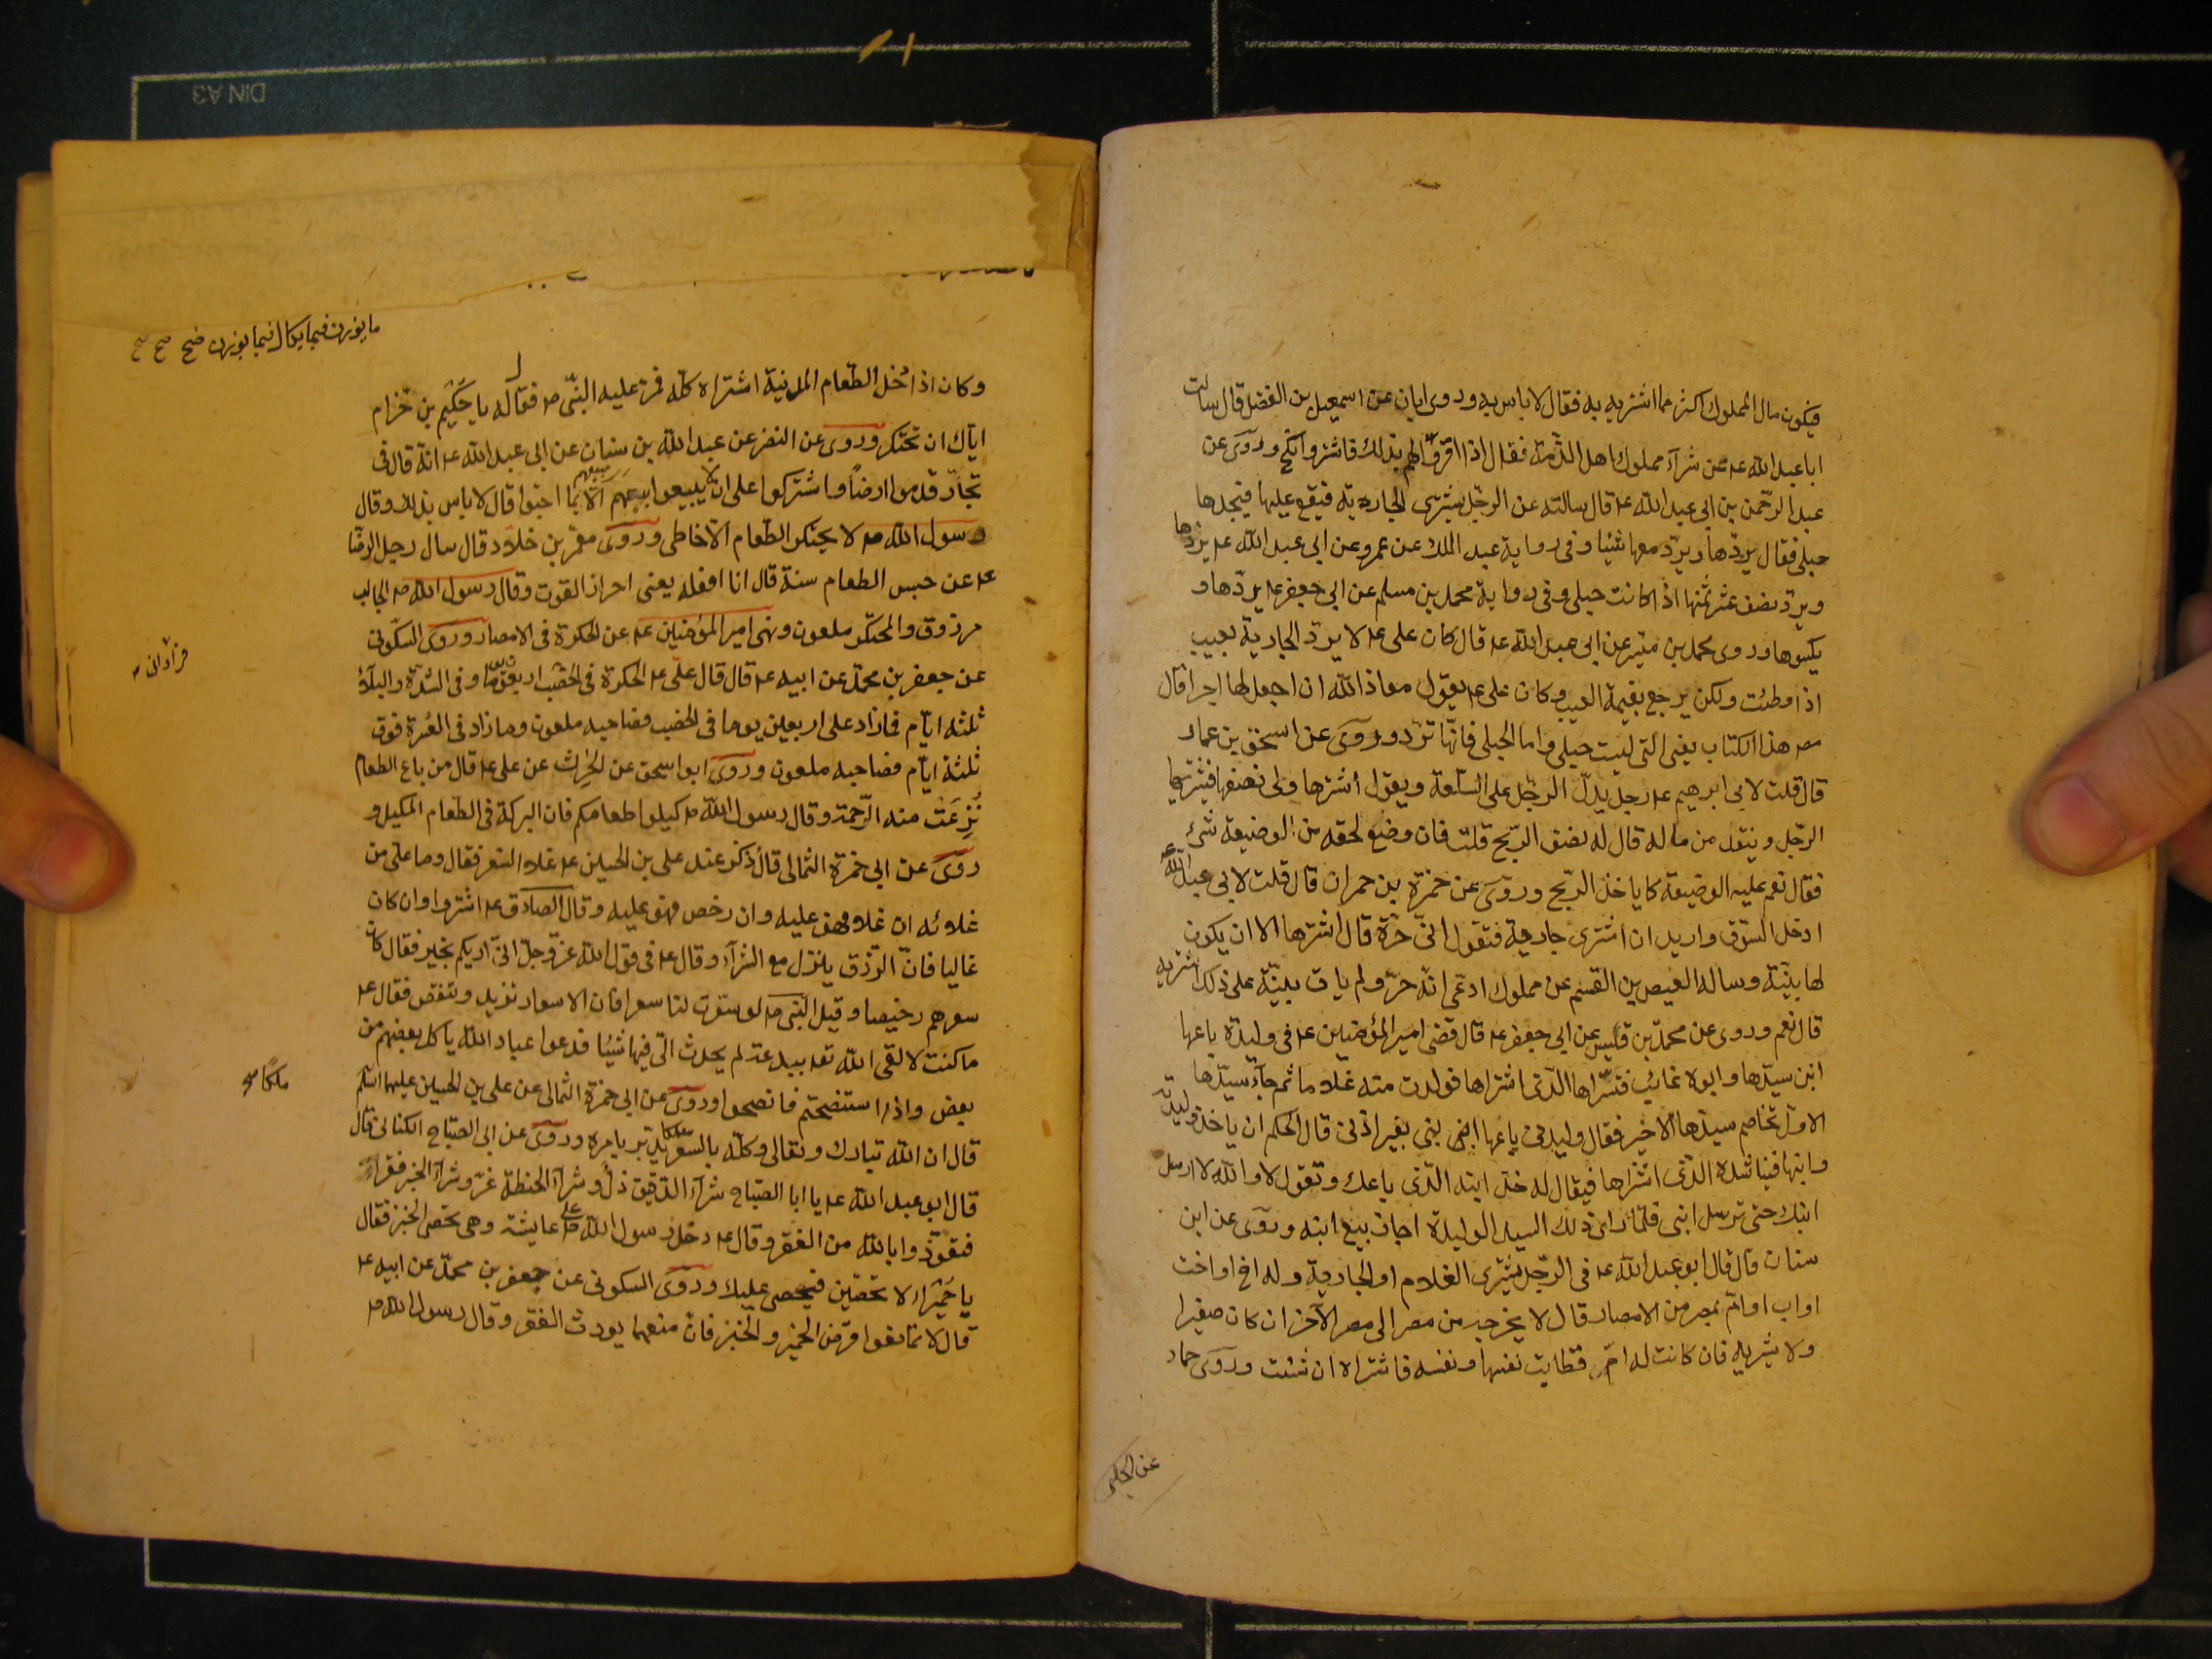 فيكون مال المملوك اكثر مما اشتريه به فقال لا باس به وروى ابان عن اسمعيل بن الفضل قال سالت
ابا عبد الله عه عن شرآء مملوك اهل الذمة فقال اذا اقروا لهم بذلك فاشتر وانكح وروى عن
عبد الرحمن بن ابى عبد الله عه قال سالته عن الرجل يشترى الجارية فيقع عليها فيجدها
حبلى فقال يردها ويرد معها شيئا وفى رواية عبد الملك عن عمرو عن ابى عبد الله عه يردها
ويرد نصف عشر ثمنها اذا كانت حبلى وفى رواية محمد بن مسلم عن ابى جعفر عه يردها و
يكسوها وروى محمد بن ميسر عن ابى عبد الله عه قال كان على عه لا يرد الجارية بعيب
اذا وطئت ولكن يرجع بقيمة العيب وكان على عه يقول معاذ الله ان اجعل لها اجرا قال
مص هذا الكتاب يعنى التى ليست حبلى واما الحبلى فانها ترد وروى عن اسحق بن عمار
قال قلت لابى ابرهيم عه رجل يدل الرجل على السلعة ويقول اشترها ولى نصفها فيشتريها
الرجل وينقد من ماله قال له نصف الربح قلت فان وضع لحقه من الوضيعة شئ
فقال نعم عليه الوضيعة كما ياخذ الربح وروى عن حمزة بن حمران قال قلت لابى عبد الله عه
ادخل السوق واريد ان اشترى جارية فتقول انى حرة قال اشترها الا ان يكون
لها بينة وساله العيص بن القسم عن مملوك ادعى انه حر ولم يات ببينة على ذلك اشتريه
قال نعم وروى عن محمد بن قيس عن ابى جعفر عه قال قضى امير المؤمنين عه فى وليدة باعها
ابن سيدها وابوه غائب فتسراها الذى اشتراها فولدت منه غلاما ثم جآء سيدها
الاول تخاصم سيدها الاخير فقال وليدتى باعها ابنى بغير اذنى قال الحكم ان ياخذ وليدته
وابنها فيناشده الذى اشتراها فيقال له خذ ابنه الذى باعك وتقول لا والله لا ارسل
ابنك حتى ترسل ابنى فلما راى ذلك السيد الوليدة اجاز بيع ابنه وروى عن ابن
سنان قال قال ابو عبد الله عه فى الرجل يشترى الغلام او الجارية وله اخ او اخت
او اب او ام بمصر من الامصار قال لا يخرجه من مصر الى مصر الآخر ان كان صغيرا
ولا يشريه فان كانت له ام فطابت نفسها ونفسه فاشتراه ان شئت وروى حماد
عن الحلبى
ما يوزن فيما يكال فيما يوزن صح
وكان اذا دخل الطعام المدينة اشتراه كله فمر عليه النبى ص فقال له يا حكيم بن حزام
اياك ان تحتكر وروى عن النضر عن عبد الله بن سنان عن ابى عبد الله عه انه قال فى
تجار قدموا ارضا واشتركوا على ان لا يبيعوا بيعهم الا بما احبوا قال لا باس بذلك وقال
رسول الله ص لا يحتكر الطعام الا خاطى وروى معمر بن خلاد قال سال رجل الرضا
عه عن حبس الطعام سنة قال انا افعله يعنى احراز القوت وقال رسول الله ص الجالب
مرزوق والمحتكر ملعون ونهى امير المؤمنين عه عن الحكرة فى الامصار وروى السكونى
عن جعفر بن محمد عن ابيه عه قال قال على عه الحكرة فى الخصب اربعون يوما وفى الشدة والبلآء
ثلثه ايام فما زاد على اربعين يوما فى الخصب فصاحبه ملعون وما زاد فى العسرة فوق
ثلثة ايام فصاحبه ملعون وروى ابو اسحق عن الحرث عن على عه قال من باع الطعام
نزعت منه الرحمة وقال رسول الله ص كيلوا طعامكم فان البركة فى الطعام المكيل و
روى عن ابى حمزة الثمالى قال ذكر عند على بن الحسين عه غلاء السعر فقال وما على من
غلائه ان غلا فهو عليه وان رخص فهو عليه وقال الصادق عه اشتروا وان كان
غاليا فان الرزق ينزل مع الشرآء وقال عه فى قول الله عز وجل انى اريكم بخير فقال كان
سعرهم رخيصا وقيل للنبى ص لو سعرت لنا سعرا فان الاسعار تزيد وتنقص فقال عه
ما كنت لالقى الله تعه ببدعة لم يحدث الى فيها شيئا فدعوا عباد الله ياكل بعضهم من
بعض واذا استنصحتم فانصحوا وروى عن ابى حمزة الثمالى عن على بن الحسين عليهما السلم
قال ان الله تبارك وتعالى وكل بالسعر ملكا يدبر بامره وروى عن ابى الصباح الكنانى قال
قال ابو عبد الله عه يا ابا الصباح شرآء الدقيق ذل وشرآء الحنطة عز وشرآء الخبز فقر
فتعوذوا بالله من الفقر وقال عه دخل رسول الله ص على عايشة وهى تحصى الخبز فقال
يا حميراء لا تحصين فيحصى عليك وروى السكونى عن جعفر بن محمد عن ابيه عه
قال لا تمانعوا قرض الخمير والخبز فان منعهما يورث الفقر وقال رسول الله ص
ملكا صح